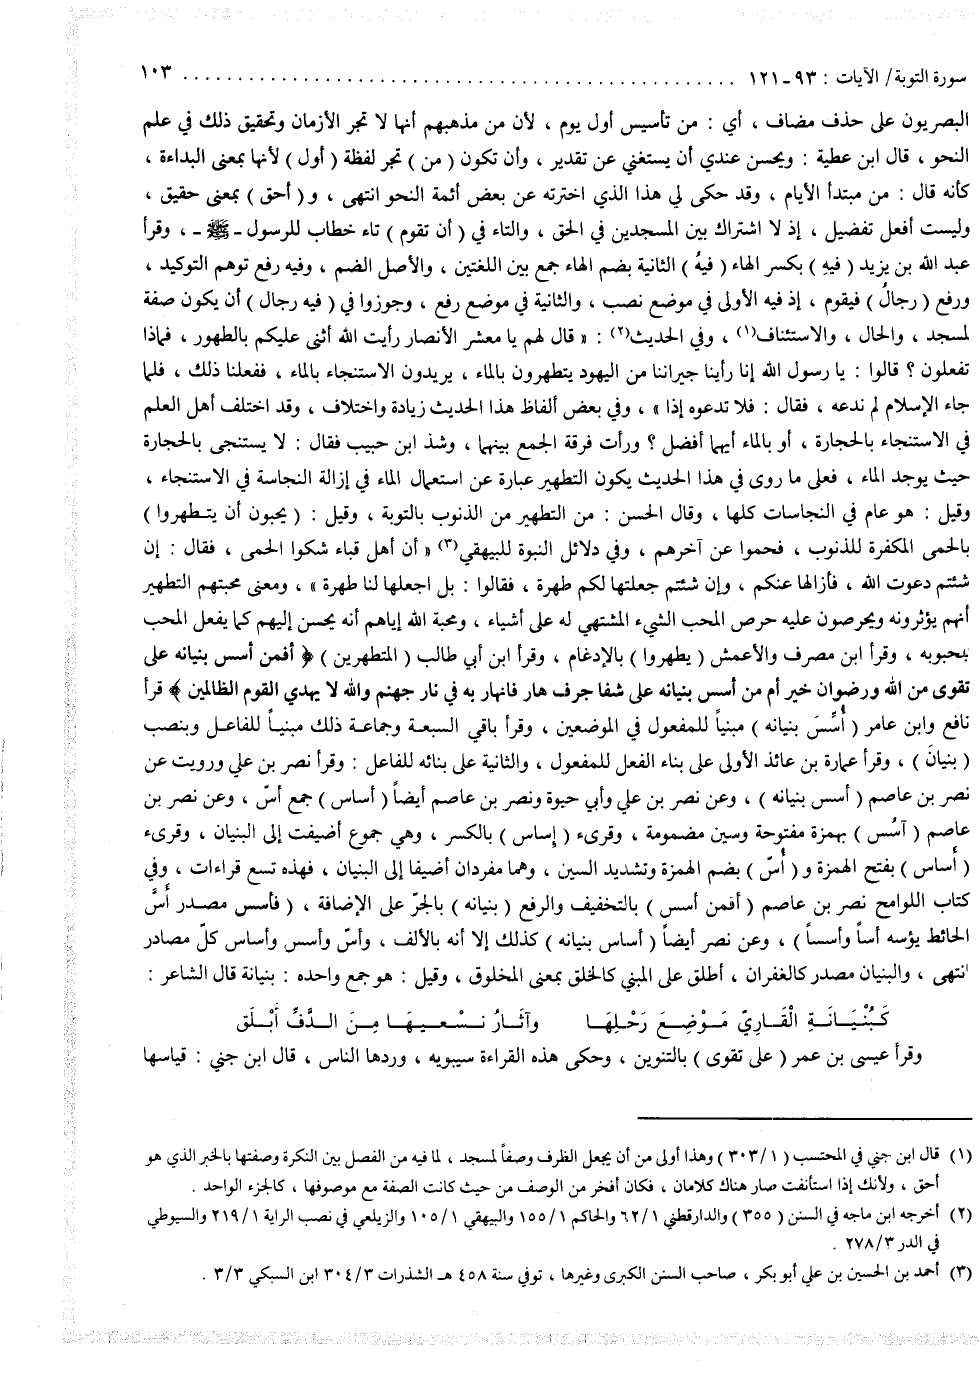 سورة التوبة/ الآيات : ٩٣ـ١٢١ ................................................ ١٠٣
البصريون على حذف مضاف ، أي : من تأسيس أول يوم ، لأن من مذهبهم أنها لا تجر الأزمان وتحقيق ذلك في علم
النحو ، قال ابن عطية : ويحسن عندي أن يستغني عن تقدير ، وأن تكون ( من ) تجر لفظة ( أول ) لأنها بمعنى البداءة ،
كأنه قال : من مبتدأ الأيام ، وقد حكى لي هذا الذي اخترته عن بعض أئمة النحو انتهى ، و ( أحق ) بمعنى حقيق ،
وليست أفعل تفضيل ، إذ لا اشتراك بين المسجدين في الحق ، والتاء في ( أن تقوم ) تاء خطاب للرسول ـ ﷺ ـ ، وقرأ
عبد الله بن يزيد ( فيهِ ) بكسر الهاء ( فيهُ ) الثانية بضم الهاء جمع بين اللغتين ، والأصل الضم ، وفيه رفع توهم التوكيد ،
ورفع ( رجالٌ ) فيقوم ، إذ فيه الأولى في موضع نصب ، والثانية في موضع رفع ، وجوزوا في ( فيه رجال ) أن يكون صفة
لمسجد ، والحال ، والاستئناف(١) ، وفي الحديث(٢) : « قال لهم يا معشر الأنصار رأيت الله أثنى عليكم بالطهور ، فماذا
تفعلون ؟ قالوا : يا رسول الله إنا رأينا جيراننا من اليهود يتطهرون بالماء ، يريدون الاستنجاء بالماء ، ففعلنا ذلك ، فلما
جاء الإسلام لم ندعه ، فقال : فلا تدعوه إذا » ، وفي بعض ألفاظ هذا الحديث زيادة واختلاف ، وقد اختلف أهل العلم
في الاستنجاء بالحجارة ، أو بالماء أيهما أفضل ؟ ورأت فرقة الجمع بينهما ، وشذ ابن حبيب فقال : لا يستنجى بالحجارة
حيث يوجد الماء ، فعلى ما روى في هذا الحديث يكون التطهير عبارة عن استعمال الماء في إزالة النجاسة في الاستنجاء ،
وقيل : هو عام في النجاسات كلها ، وقال الحسن : من التطهير من الذنوب بالتوبة ، وقيل : ( يحبون أن يتطهروا )
بالحمى المكفرة للذنوب ، فحموا عن آخرهم ، وفي دلائل النبوة للبيهقي(٣) « أن أهل قباء شكوا الحمى ، فقال : إن
شئتم دعوت الله ، فأزالها عنكم ، وإن شئتم جعلتها لكم طهرة ، فقالوا : بل اجعلها لنا طهرة » ، ومعنى محبتهم التطهير
أنهم يؤثرونه ويحرصون عليه حرص المحب الشيء المشتهي له على أشياء ، ومحبة الله إياهم أنه يحسن إليهم كما يفعل المحب
بمحبوبه ، وقرأ ابن مصرف والأعمش ( يطهروا ) بالإدغام ، وقرأ ابن أبي طالب ( المتطهرين ) ﴿ أفمن أسس بنيانه على
تقوى من الله ورضوان خير أم من أسس بنيانه على شفا جرف هار فانهار به في نار جهنم والله لا يهدي القوم الظالمين ﴾ قرأ
نافع وابن عامر ( أُسِّسَ بنيانه ) مبنياً للمفعول في الموضعين ، وقرأ باقي السبعة وجماعة ذلك مبنياً للفاعل وبنصب
( بنيانَ ) ، وقرأ عمارة بن عائذ الأولى على بناء الفعل للمفعول ، والثانية على بنائه للفاعل : وقرأ نصر بن علي ورويت عن
نصر بن عاصم ( أسس بنيانه ) ، وعن نصر بن علي وأبي حيوة ونصر بن عاصم أيضاً ( أساس ) جمع أسّ ، وعن نصر بن
عاصم ( آسُس ) بهمزة مفتوحة وسين مضمومة ، وقرىء ( إساس ) بالكسر ، وهي جموع أضيفت إلى البنيان ، وقرىء
( أَساس ) بفتح الهمزة و ( أُسّ ) بضم الهمزة وتشديد السين ، وهما مفردان أضيفا إلى البنيان ، فهذه تسع قراءات ، وفي
كتاب اللوامح نصر بن عاصم ( أفمن أسس ) بالتخفيف والرفع ( بنيانه ) بالجرّ على الإضافة ، ( فأسس مصدر أُسَّ
الحائط يؤسه أساً وأسساً ) ، وعن نصر أيضاً ( أساس بنيانه ) كذلك إلا أنه بالألف ، وأسّ وأسس وأساس كلّ مصادر
انتهى ، والبنيان مصدر كالغفران ، أطلق على المبني كالخلق بمعنى المخلوق ، وقيل : هو جمع واحده : بنيانة قال الشاعر :
كَبُنْيَانَةِ الْقَارِيّ مَوْضِعَ رَحْلِهَا    وآثَارُ نَسْعَيْهَا مِنَ الدَّفِّ أَبْلَق
وقرأ عيسى بن عمر ( على تقوى ) بالتنوين ، وحكى هذه القراءة سيبويه ، وردها الناس ، قال ابن جني : قياسها
(١) قال ابن جني في المحتسب ( ٣٠٣/١ ) وهذا أولى من أن يجعل الظرف وصفاً لمسجد ، لما فيه من الفصل بين النكرة وصفتها بالخبر الذي هو
أحق ، ولأنك إذا استأنفت صار هناك كلامان ، فكان أفخر من الوصف من حيث كانت الصفة مع موصوفها ، كالجزء الواحد .
(٢) أخرجه ابن ماجه في السنن ( ٣٥٥ ) والدارقطني ٦٢/١ والحاكم ١٥٥/١ والبيهقي ١٠٥/١ والزيلعي في نصب الراية ٢١٩/١ والسيوطي
في الدر ٢٧٨/٣ .
(٣) أحمد بن الحسين بن علي أبو بكر ، صاحب السنن الكبرى وغيرها ، توفي سنة ٤٥٨ هـ الشذرات ٣٠٤/٣ ابن السبكي ٣/٣ .